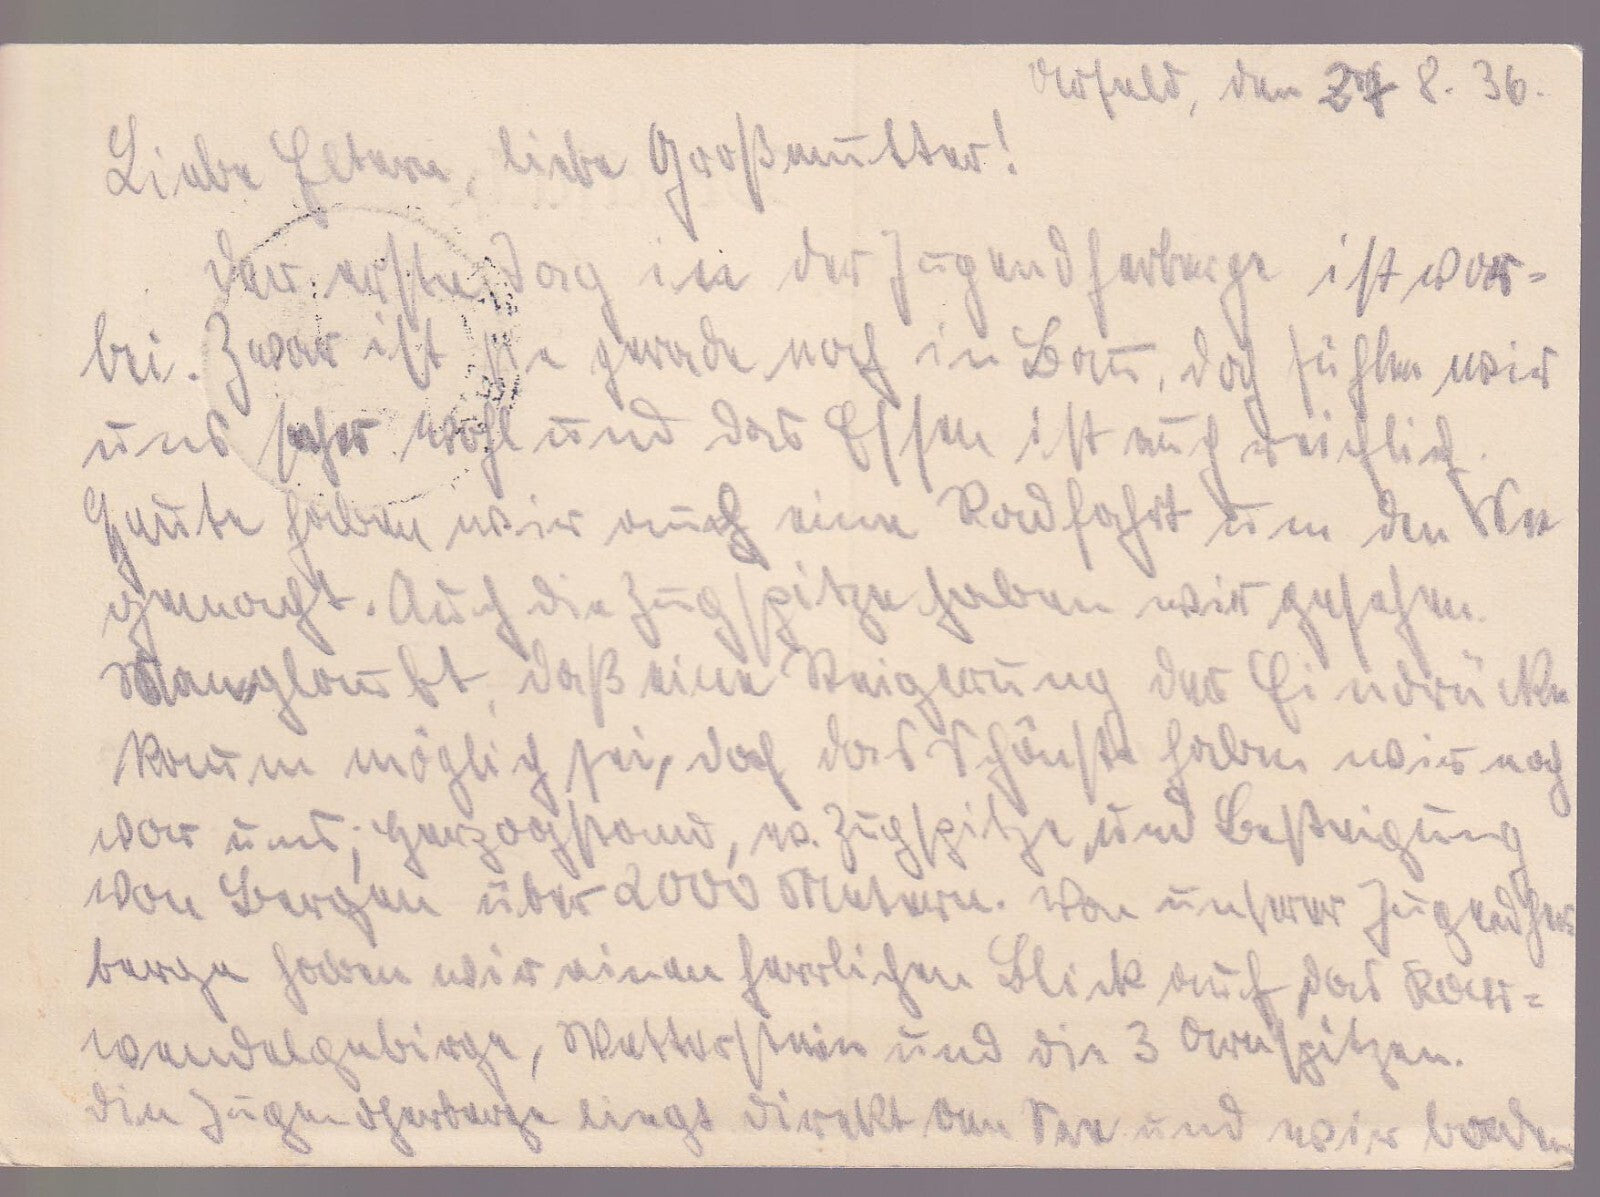 Urfeld, den 27 8. 36.
Liebe Eltern, liebe Großmutter!
Der erste Tag in der Jugendherberge ist vor=
bei. Zwar ist sie gerade noch in Bau, doch fühlen wir
uns sehr wohl und das Essen ist auch reichlich.
Heute haben wir auch eine Radfahrt um den See
gemacht. Auch die Zugspitze haben wir gesehen.
Man glaubt, daß eine Steigerung der Eindrücke
kaum möglich sei, doch das Schönste haben wir noch
vor uns; Herzogstand, Zugspitze und Besteigung
von Bergen über 2000 Metern. Von unserer Jugendher=
berge haben wir einen herrlichen Blick auf das Kar=
wendelgebirge, Wetterstein und die 3 Arnspitzen.
Die Jugendherberge liegt direkt am See und wir baden